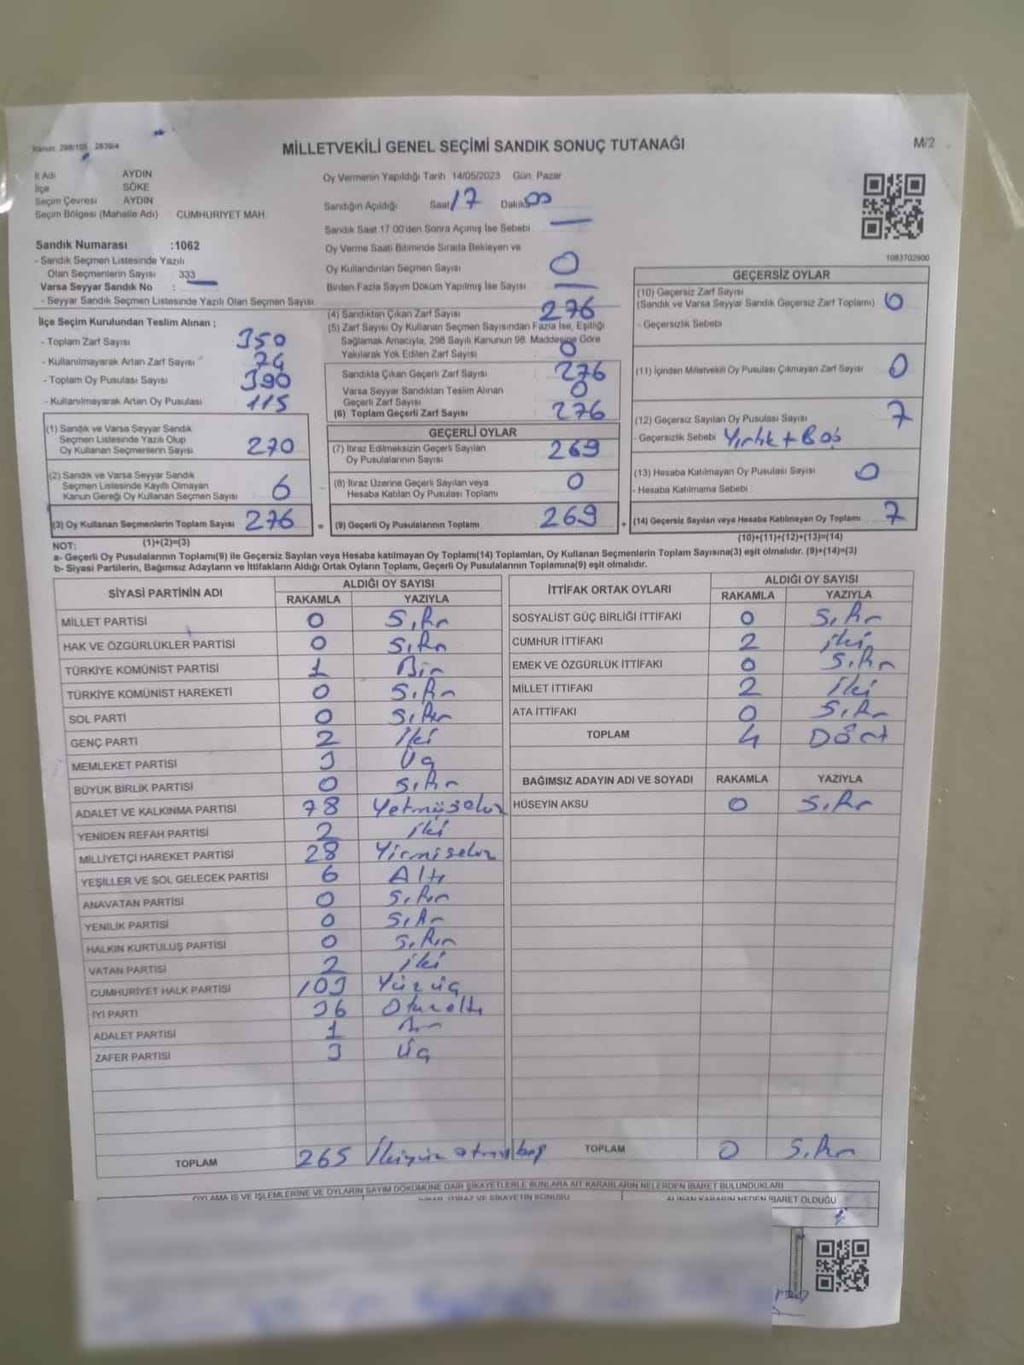 MİLLETVEKİLİ GENEL SEÇİMİ SANDIK SONUÇ TUTANAĞI
M/2
İl Adı AYDIN
İlçe SÖKE
Seçim Çevresi AYDIN
Seçim Bölgesi (Mahalle Adı) CUMHURİYET MAH.
Sandık Numarası :1062
- Sandık Seçmen Listesinde Yazılı
Olan Seçmenlerin Sayısı 333
Varsa Seyyar Sandık No :
- Seyyar Sandık Seçmen Listesinde Yazılı Olan Seçmen Sayısı
Oy Vermenin Yapıldığı Tarih 14/05/2023 Gün Pazar
Sandığın Açıldığı Saat 17 Dakika 00
Sandık Saat 17.00'den Sonra Açımış İse Sebebi —
Oy Verme Saati Bitiminde Sırada Bekleyen ve
Oy Kullandırılan Seçmen Sayısı 0
Birden Fazla Sayım Döküm Yapılmış İse Sayısı —
1083702900
İlçe Seçim Kurulundan Teslim Alınan ;
- Toplam Zarf Sayısı 350
- Kullanılmayarak Artan Zarf Sayısı 74
- Toplam Oy Pusulası Sayısı 390
- Kullanılmayarak Artan Oy Pusulası 115
(1) Sandık ve Varsa Seyyar Sandık
Seçmen Listesinde Yazılı Olup
Oy Kullanan Seçmenlerin Sayısı 270
(2) Sandık ve Varsa Seyyar Sandık
Seçmen Listesinde Kayıtlı Olmayan
Kanun Gereği Oy Kullanan Seçmen Sayısı 6
(3) Oy Kullanan Seçmenlerin Toplam Sayısı 276
(4) Sandıktan Çıkan Zarf Sayısı 276
(5) Zarf Sayısı Oy Kullanan Seçmen Sayısından Fazla İse, Eşitliği
Sağlamak Amacıyla, 298 Sayılı Kanunun 98. Maddesine Göre
Yakılarak Yok Edilen Zarf Sayısı 0
Sandıkta Çıkan Geçerli Zarf Sayısı 276
Varsa Seyyar Sandıktan Teslim Alınan
Geçerli Zarf Sayısı 0
(6) Toplam Geçerli Zarf Sayısı 276
GEÇERLİ OYLAR
(7) İtiraz Edilmeksizin Geçerli Sayılan
Oy Pusulalarının Sayısı 269
(8) İtiraz Üzerine Geçerli Sayılan veya
Hesaba Katılan Oy Pusulası Toplamı 0
= (9) Geçerli Oy Pusulalarının Toplamı 269
GEÇERSİZ OYLAR
(10) Geçersiz Zarf Sayısı
(Sandık ve Varsa Seyyar Sandık Geçersiz Zarf Toplamı) 0
- Geçersizlik Sebebi
(11) İçinden Milletvekili Oy Pusulası Çıkmayan Zarf Sayısı 0
(12) Geçersiz Sayılan Oy Pusulası Sayısı 7
- Geçersizlik Sebebi Yırtık + Boş
(13) Hesaba Katılmayan Oy Pusulası Sayısı 0
- Hesaba Katılmama Sebebi
+ (14) Geçersiz Sayılan veya Hesaba Katılmayan Oy Toplamı 7
NOT: (1)+(2)=(3)
(10)+(11)+(12)+(13)=(14)
a- Geçerli Oy Pusulalarının Toplamı(9) ile Geçersiz Sayılan veya Hesaba katılmayan Oy Toplamı(14) Toplamları, Oy Kullanan Seçmenlerin Toplam Sayısına(3) eşit olmalıdır. (9)+(14)=(3)
b- Siyasi Partilerin, Bağımsız Adayların ve İttifakların Aldığı Ortak Oyların Toplamı, Geçerli Oy Pusulalarının Toplamına(9) eşit olmalıdır.
SİYASİ PARTİNİN ADI ALDIĞI OY SAYISI
RAKAMLA YAZIYLA
MİLLET PARTİSİ 0 Sıfır
HAK VE ÖZGÜRLÜKLER PARTİSİ 0 Sıfır
TÜRKİYE KOMÜNİST PARTİSİ 1 Bir
TÜRKİYE KOMÜNİST HAREKETİ 0 Sıfır
SOL PARTİ 0 Sıfır
GENÇ PARTİ 2 İki
MEMLEKET PARTİSİ 3 Üç
BÜYÜK BİRLİK PARTİSİ 0 Sıfır
ADALET VE KALKINMA PARTİSİ 78 Yetmişsekiz
YENİDEN REFAH PARTİSİ 2 iki
MİLLİYETÇİ HAREKET PARTİSİ 28 Yirmisekiz
YEŞİLLER VE SOL GELECEK PARTİSİ 6 Altı
ANAVATAN PARTİSİ 0 Sıfır
YENİLİK PARTİSİ 0 Sıfır
HALKIN KURTULUŞ PARTİSİ 0 Sıfır
VATAN PARTİSİ 2 iki
CUMHURİYET HALK PARTİSİ 103 Yüzüç
İYİ PARTİ 36 Otuzaltı
ADALET PARTİSİ 1 Bir
ZAFER PARTİSİ 3 Üç
TOPLAM 265 İkiyüz atmışbeş
İTTİFAK ORTAK OYLARI ALDIĞI OY SAYISI
RAKAMLA YAZIYLA
SOSYALİST GÜÇ BİRLİĞİ İTTİFAKI 0 Sıfır
CUMHUR İTTİFAKI 2 iki
EMEK VE ÖZGÜRLÜK İTTİFAKI 0 Sıfır
MİLLET İTTİFAKI 2 iki
ATA İTTİFAKI 0 Sıfır
TOPLAM 4 Dört
BAĞIMSIZ ADAYIN ADI VE SOYADI RAKAMLA YAZIYLA
HÜSEYİN AKSU 0 Sıfır
TOPLAM 0 Sıfır
OYLAMA İŞ VE İŞLEMLERİNE VE OYLARIN SAYIM DÖKÜMÜNE DAİR ŞİKAYETLERLE BUNLARA AİT KARARLARIN NELERDEN İBARET BULUNDUKLARI